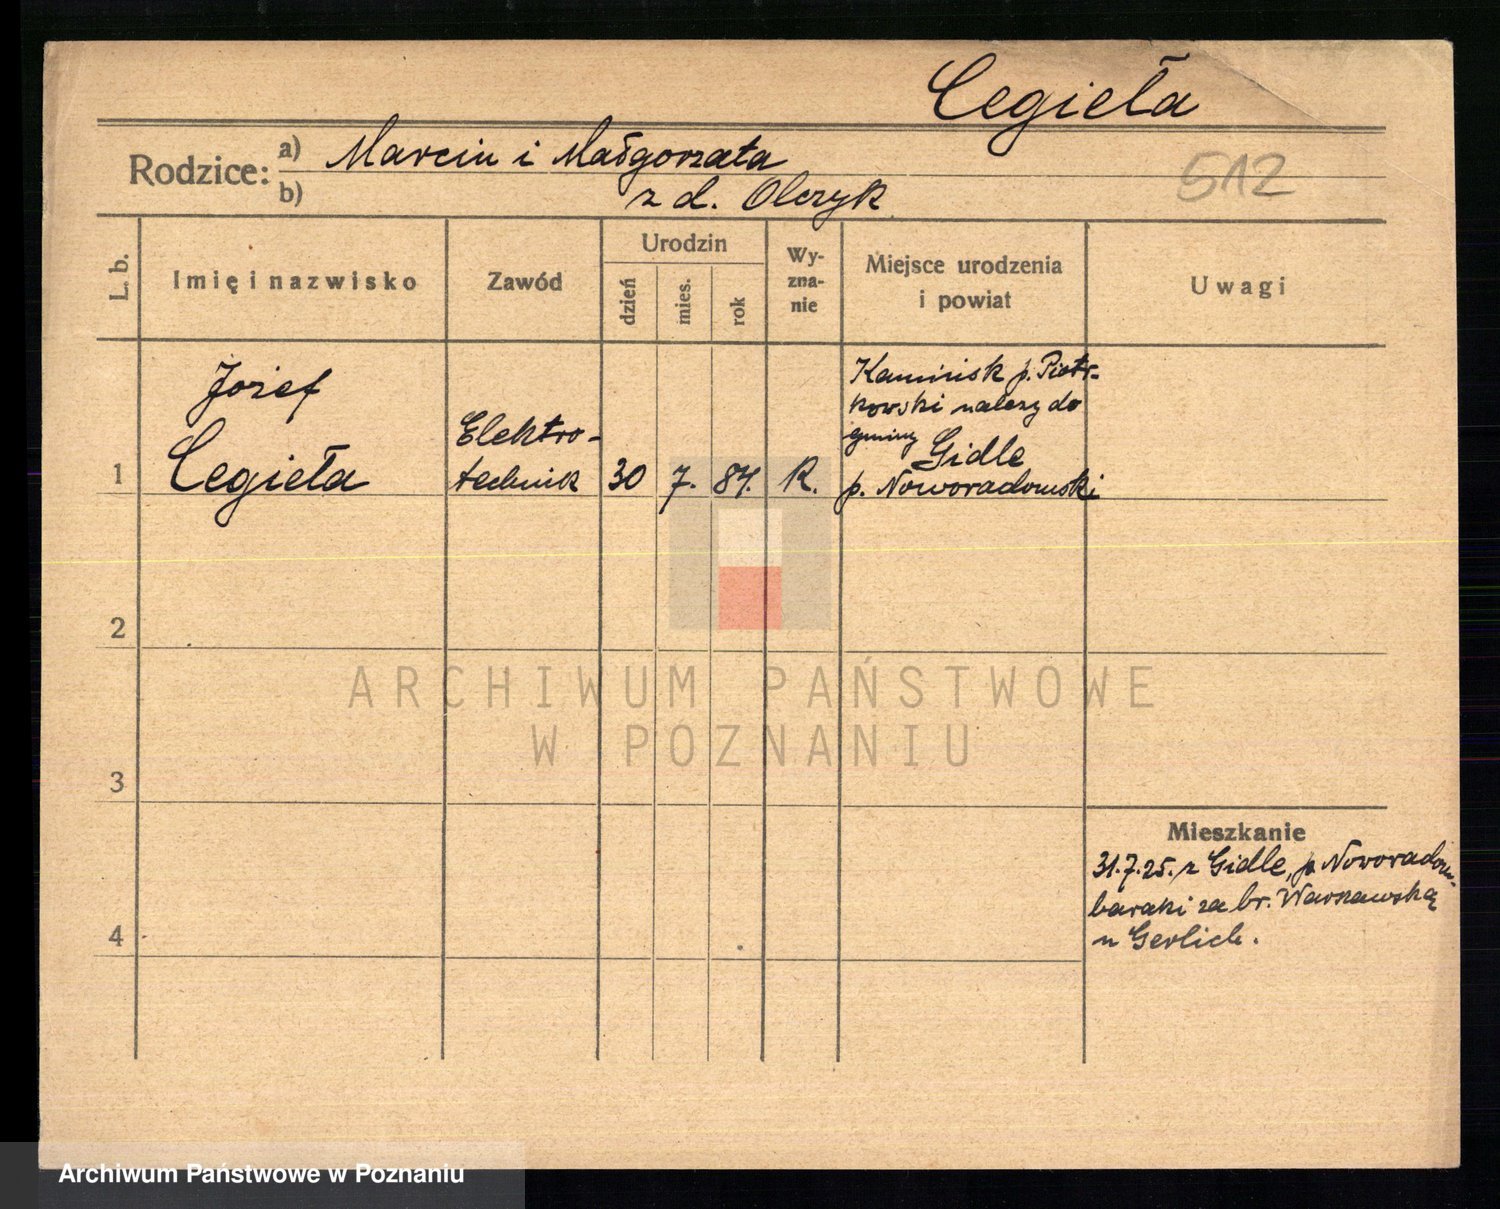 Cegieła
Rodzice: a) Marcin i Małgorzata
b) z d. Olczyk
512
L. b.
Imię i nazwisko
Zawód
Urodzin
dzień
mies.
rok
Wy-
zna-
nie
Miejsce urodzenia
i powiat
Uwagi
1
Józef
Cegieła
Elektro-
technik
30
7.
84.
R.
Kamińsk p. Piotr-
kowski należy do
gminy Gidle
p. Noworadomski
2
3
4
Mieszkanie
31.7.25. z Gidle, p. Noworadom.
baraki za br. Warszawską
u Gerlich.
ARCHIWUM PAŃSTWOWE
W POZNANIU
Archiwum Państwowe w Poznaniu